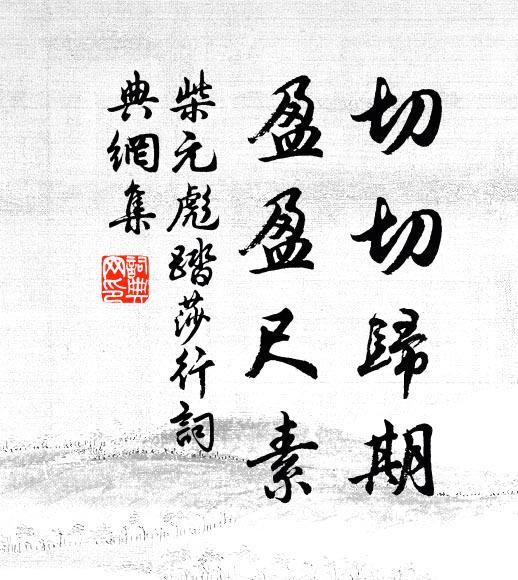 切切歸期
盈盈尺素
柴元彪踏莎行詞
典網集
詞典網印